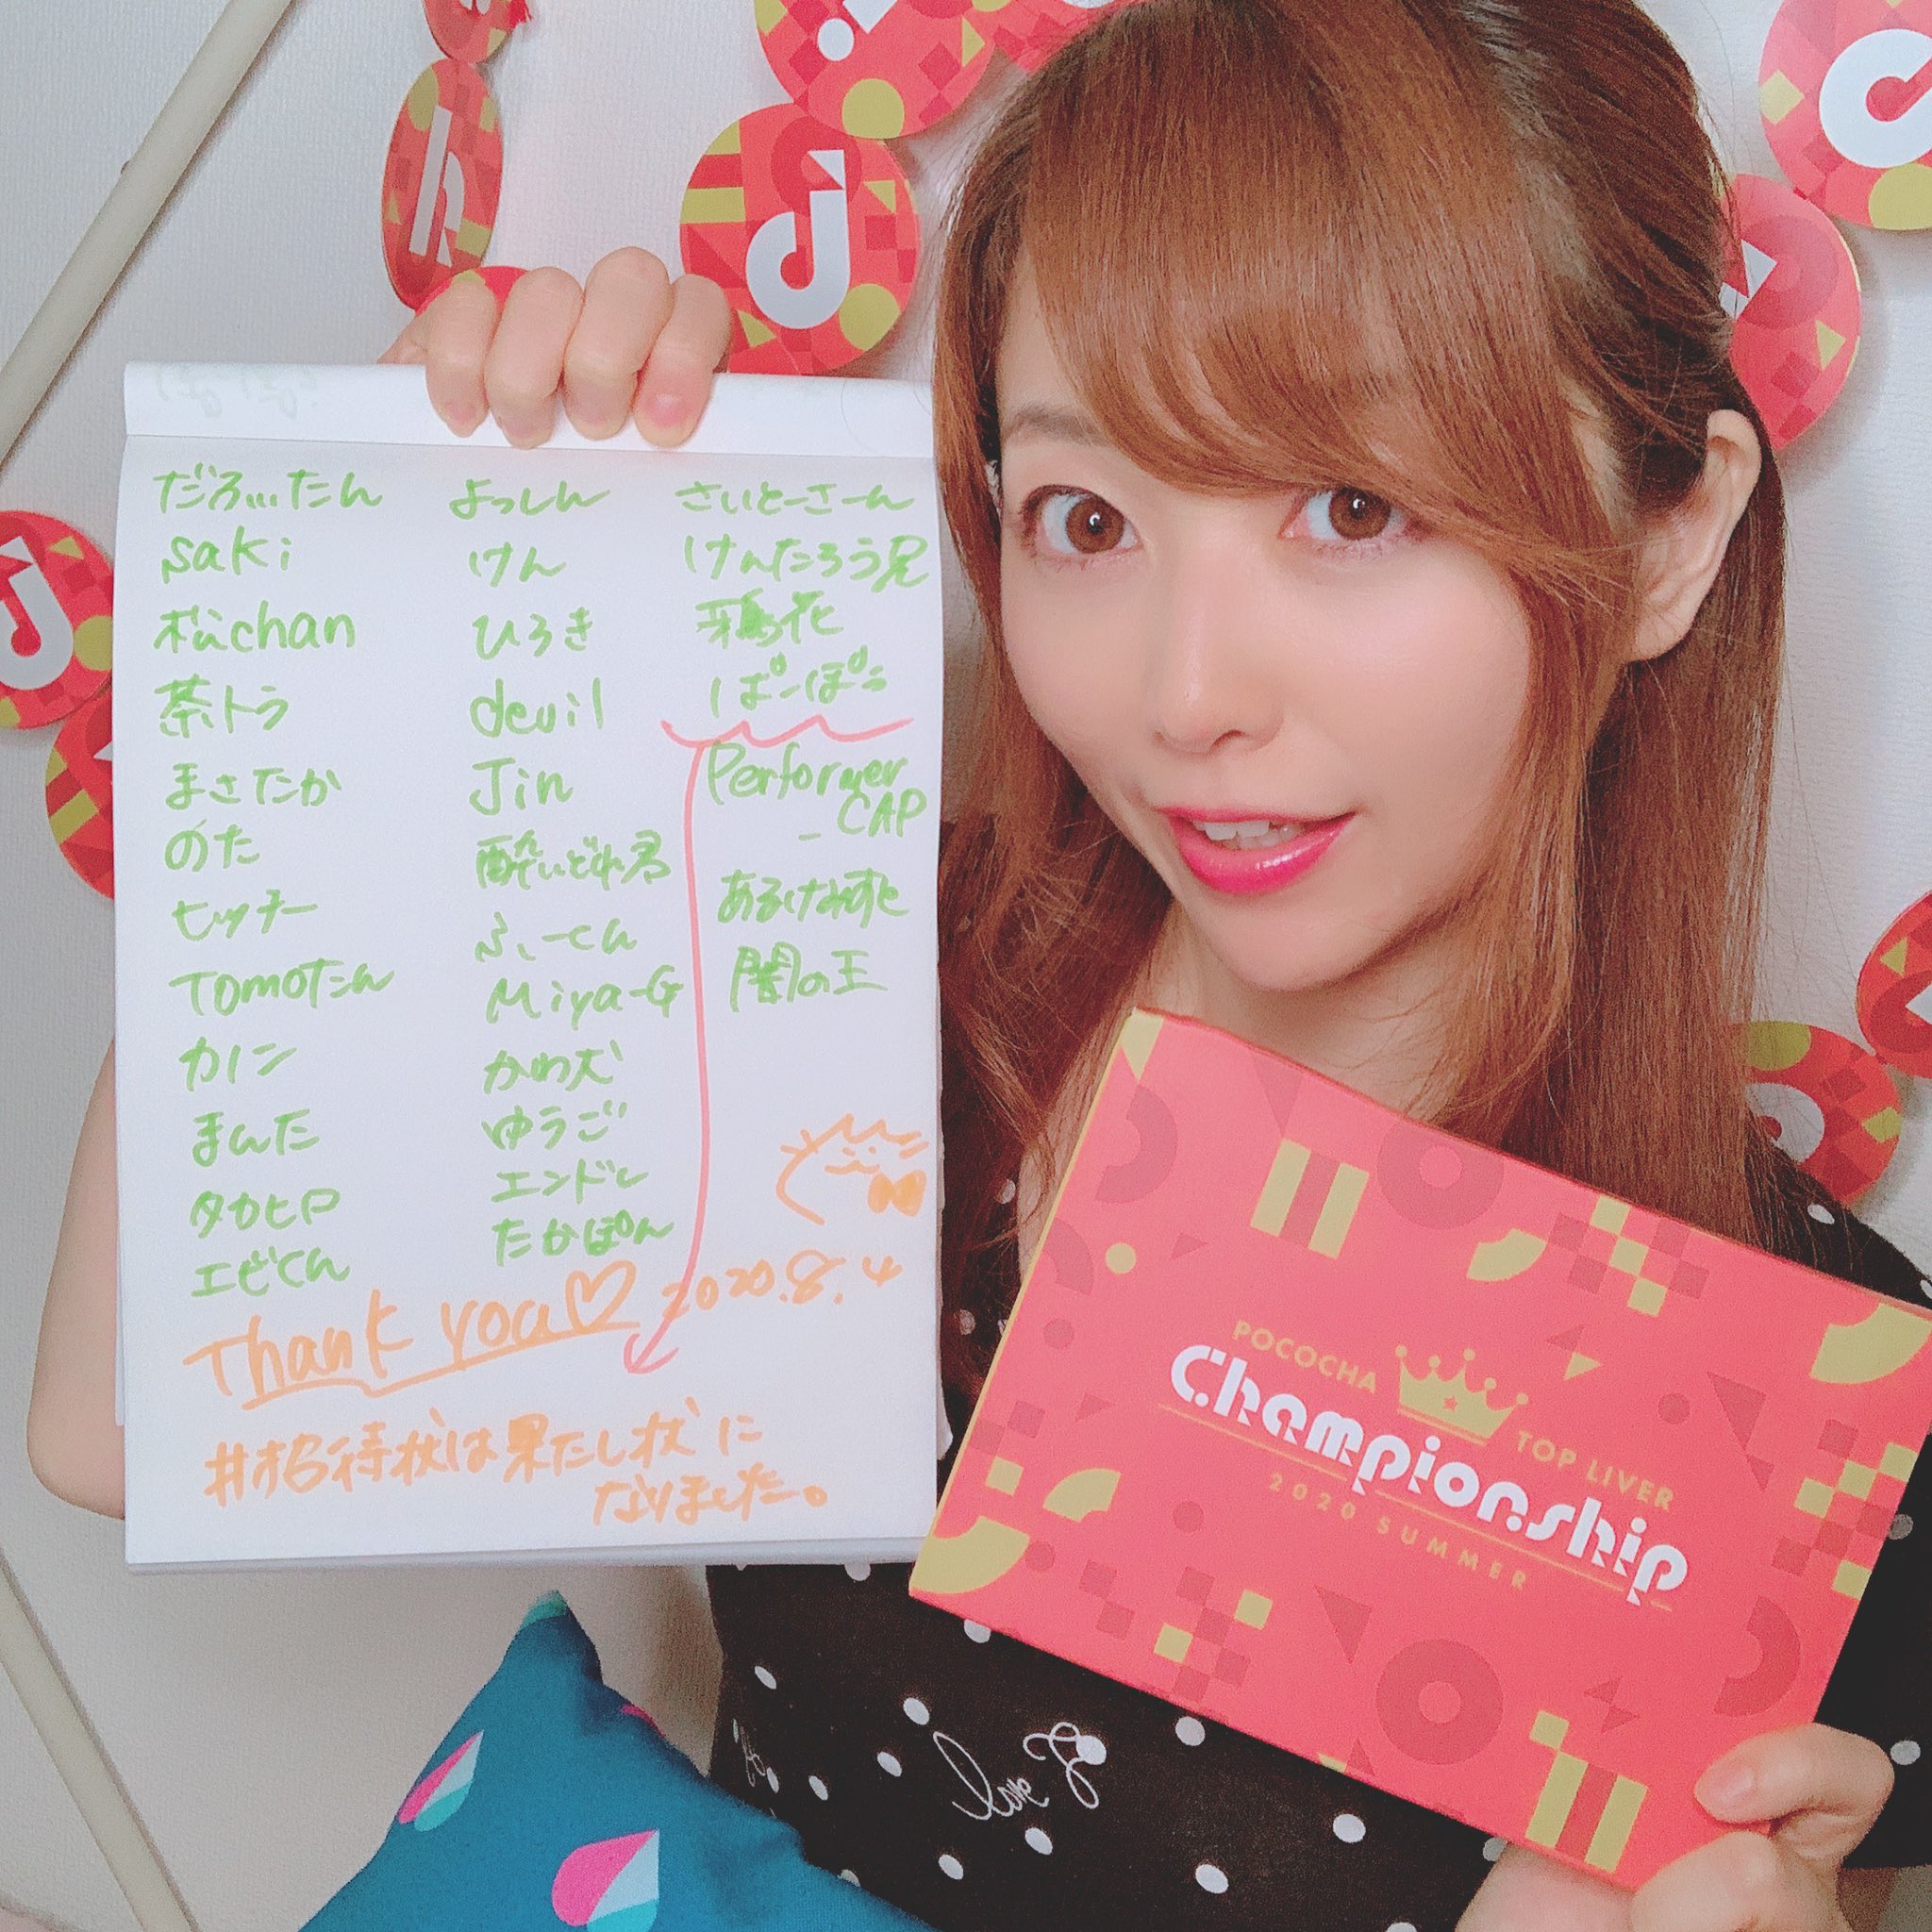 だろぃたん
saki
松chan
茶トラ
まさたか
のた
ヒッチー
Tomoたん
カノン
まんた
タカヒロ
エビくん
よっしん
けん
ひろき
devil
Jin
酔いどれ君
ふぃーくん
Miya-G
かわ犬
ゆうご
エンドレ
たかぽん
さいとーさーん
けんたろう兄
鴉花
ぱーぽう
Performer
_CAP
あるけみすと
闇の王
Thank you♡ 2020.8.4
#招待状は果たし状に
なりました。
POCOCHA TOP LIVER
Championship
2020 SUMMER
love
h
d